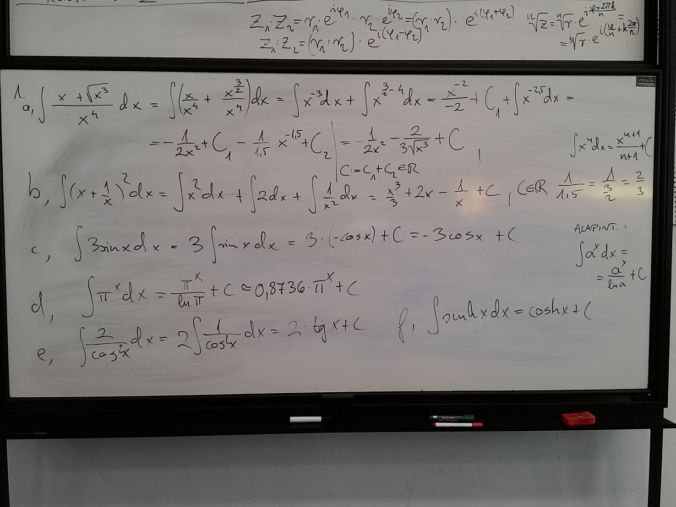 Z₁·Z₂ = r₁·e^{iφ₁}·r₂·e^{iφ₂} = (r₁·r₂)·e^{i(φ₁+φ₂)}
ⁿ√z = ⁿ√r·e^{i(φ+2πk)/n} =
Z₁:Z₂ = (r₁:r₂)·e^{i(φ₁-φ₂)}
= ⁿ√r·e^{i(φ/n+k·2π/n)}
1.
a, ∫ (x+√x³)/x⁴ dx = ∫(x/x⁴ + x^{3/2}/x⁴)dx = ∫x⁻³dx + ∫x^{3/2-4}dx = x⁻²/-2 + C₁ + ∫x^{-2,5}dx =
= -1/2x² + C₁ - 1/1,5 x^{-1,5} + C₂ | = -1/2x² - 2/3√x³ + C,
C:=C₁+C₂∈ℝ
∫xⁿdx = x^{n+1}/n+1 + C
b, ∫(x+1/x)²dx = ∫x²dx + ∫2dx + ∫1/x² dx = x³/3 + 2x - 1/x + C, C∈ℝ
1/1,5 = 1/(3/2) = 2/3
c, ∫3sinxdx = 3∫sinxdx = 3·(-cosx)+C = -3cosx + C
ALAPINT.:
∫aˣdx =
= aˣ/lna + C
d, ∫πˣdx = πˣ/lnπ + C ≈ 0,8736·πˣ + C
e, ∫2/cos²x dx = 2∫1/cos²x dx = 2·tgx + C
f, ∫sinhxdx = coshx + C